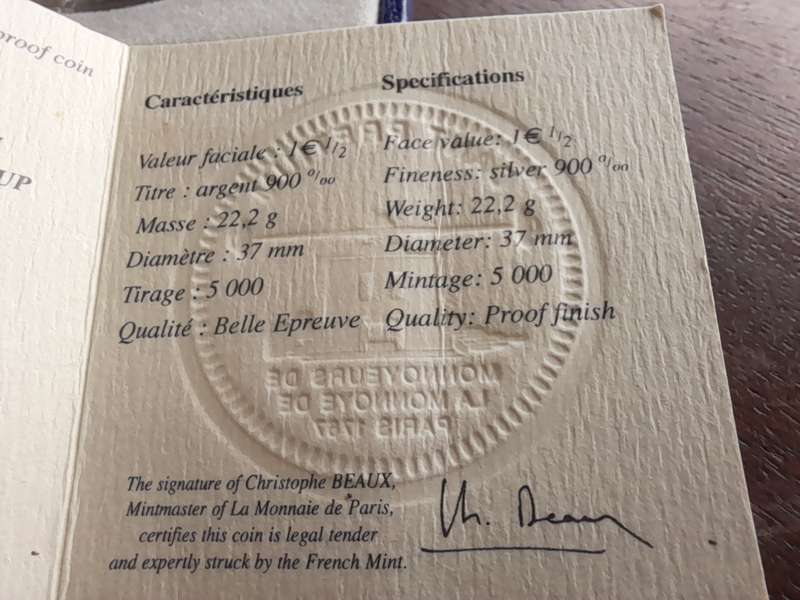 proof coin
UP
Caractéristiques
Valeur faciale : 1€ 1/2
Titre : argent 900 °/oo
Masse : 22,2 g
Diamètre : 37 mm
Tirage : 5 000
Qualité : Belle Epreuve
Specifications
Face value: 1€ 1/2
Fineness: silver 900 °/oo
Weight: 22,2 g
Diameter: 37 mm
Mintage: 5 000
Quality: Proof finish
MONNOYEURS DE
LA MONNOYE DE
PARIS 1767
The signature of Christophe BEAUX,
Mintmaster of La Monnaie de Paris,
certifies this coin is legal tender
and expertly struck by the French Mint.
Ch. Beaux